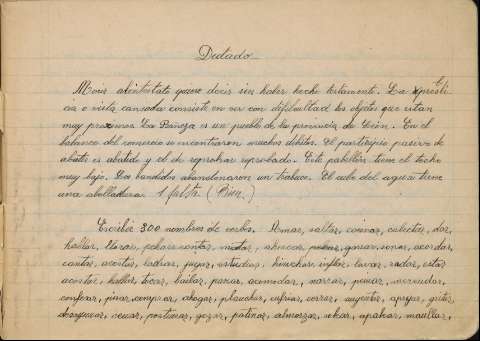 Dictado
Morir abintestato quiere decir sin haber hecho testamento. La presbi-
cia o vista cansada consiste en ver con dificultad los objetos que estan
muy proximos La Bañeza es un pueblo de la provincia de León. En el
balance del comercio se encontraron muchos debitos. El participio pasivo de
abatir es abatido y el de reprobar reprobado. Este pabellón tiene el techo
muy bajo. Los bandidos abandonaron un trabuco. El cubo del agua tiene
una abolladura. 1 falta (Bien.)
Escribir 300 nombres de verbos. Amar, saltar, colectar, dar,
hallar, llorar, contar, ahuecar sonar, acordar,
cantar, acertar, ladrar, jugar, estudiar, hinchar, inflar, lavar, rodar, estar
acostar, hablar, tocar, bailar, parar, acomodar, narrar, pensar, merendar,
confesar, pisar, comprar, ahogar, planchar, enfriar, correr, gritar,
gozar, patinar, almorzar, maullar,